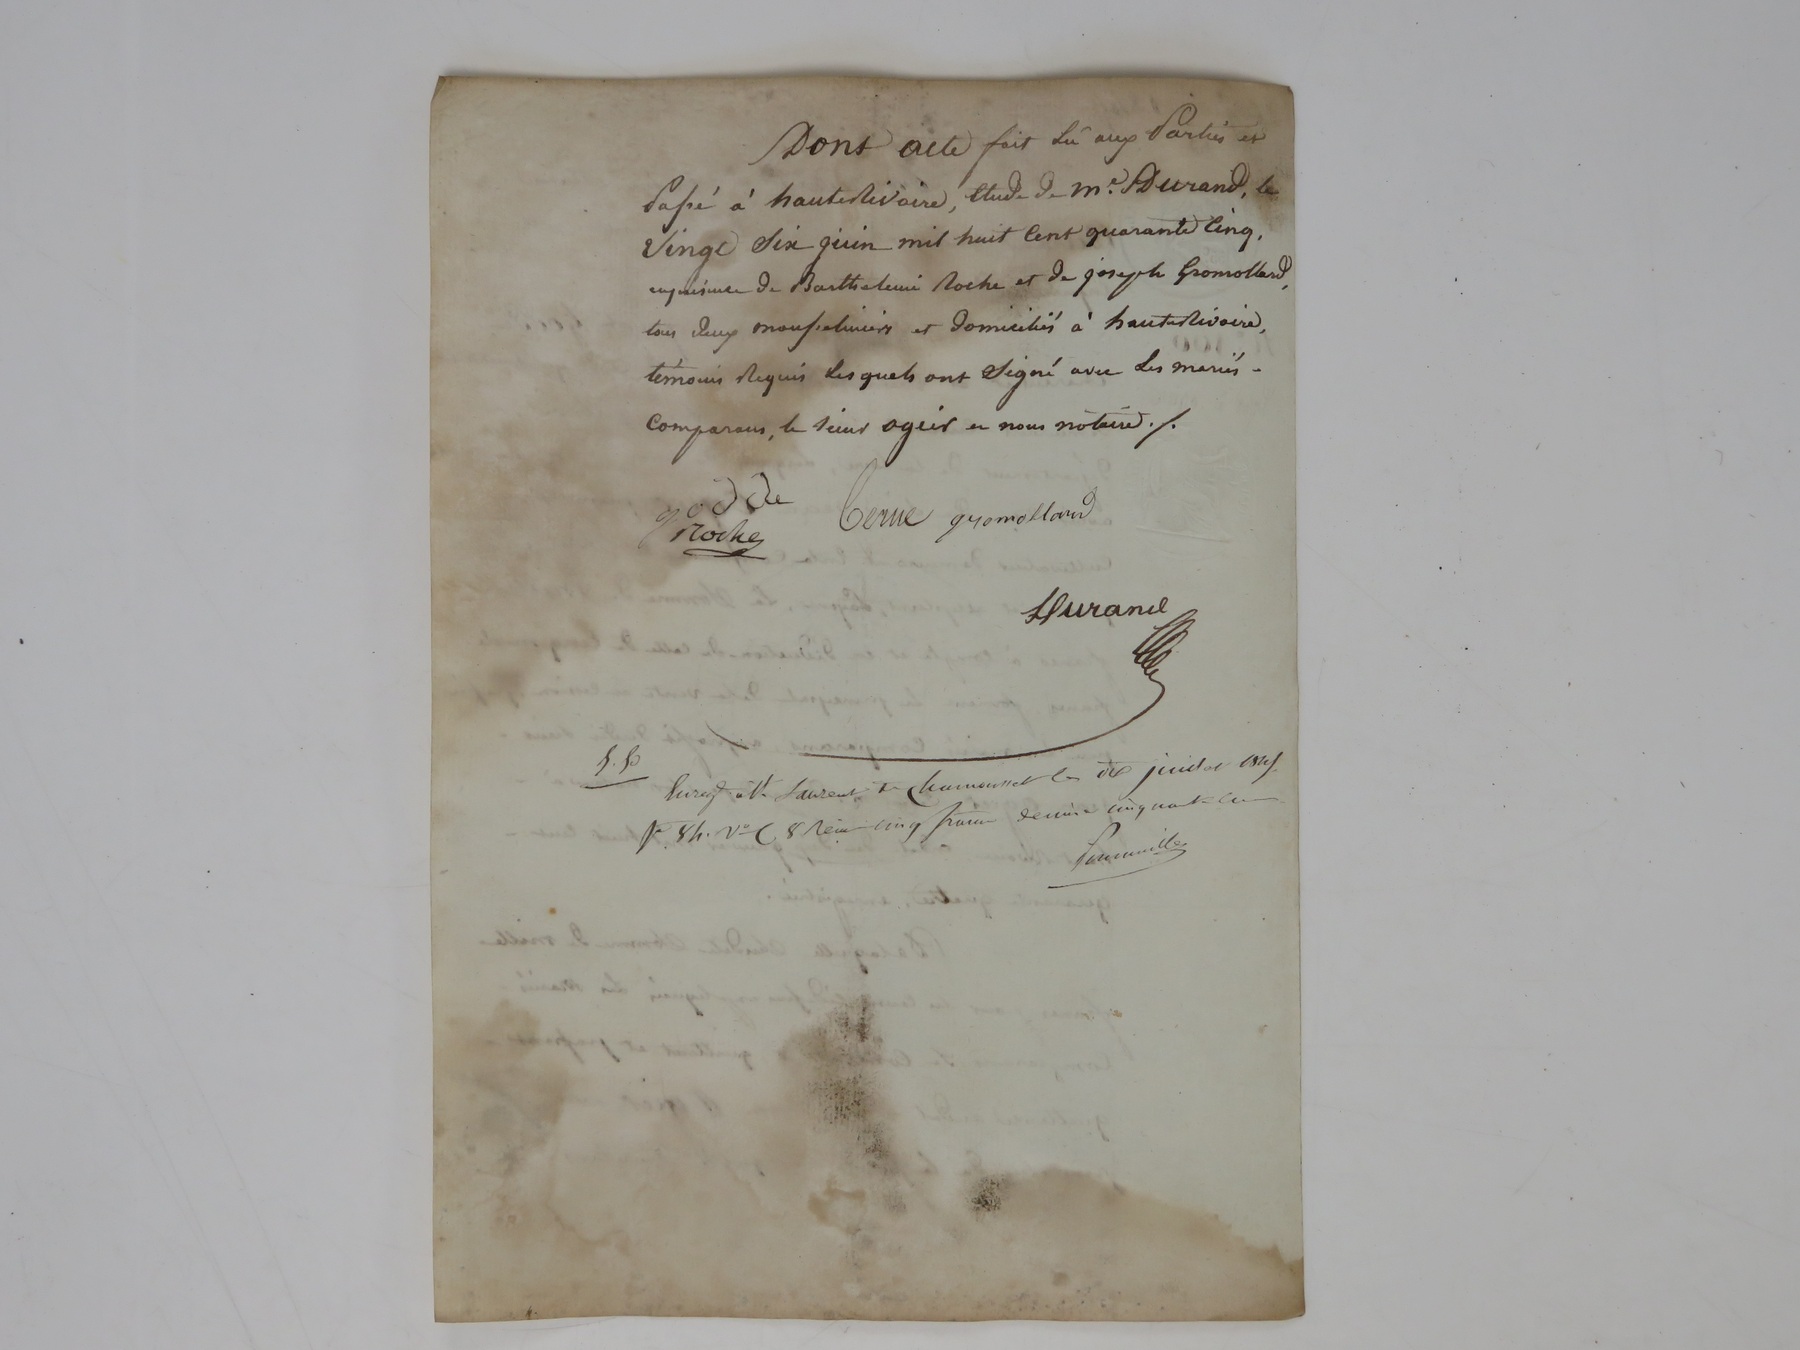 Dont acte fait Lu aux Parties et
Passé à hauterivoire, Etude de Me. Durand, le
Vingt Six juin mil huit Cent quarante Cinq,
en présence de Barthelemi Roche et de joseph Gromollard,
tous deux mousseliniers et domiciliés à hauterivoire,
témoins Requis Lesquels ont Signé avec Les mariés
Comparans, le sieur ogier et nous notaire ./.
Roche Terme gromollard
Durand
Enreg. à St. Laurent de Chamousset le dix juillet 1845
fo. 84. Vo. C. 8 Reçu cinq francs decime cinquante c